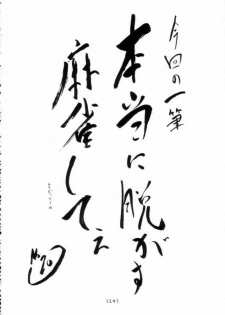 今回の一筆
本当に脱がす
麻雀してぇ
(24)